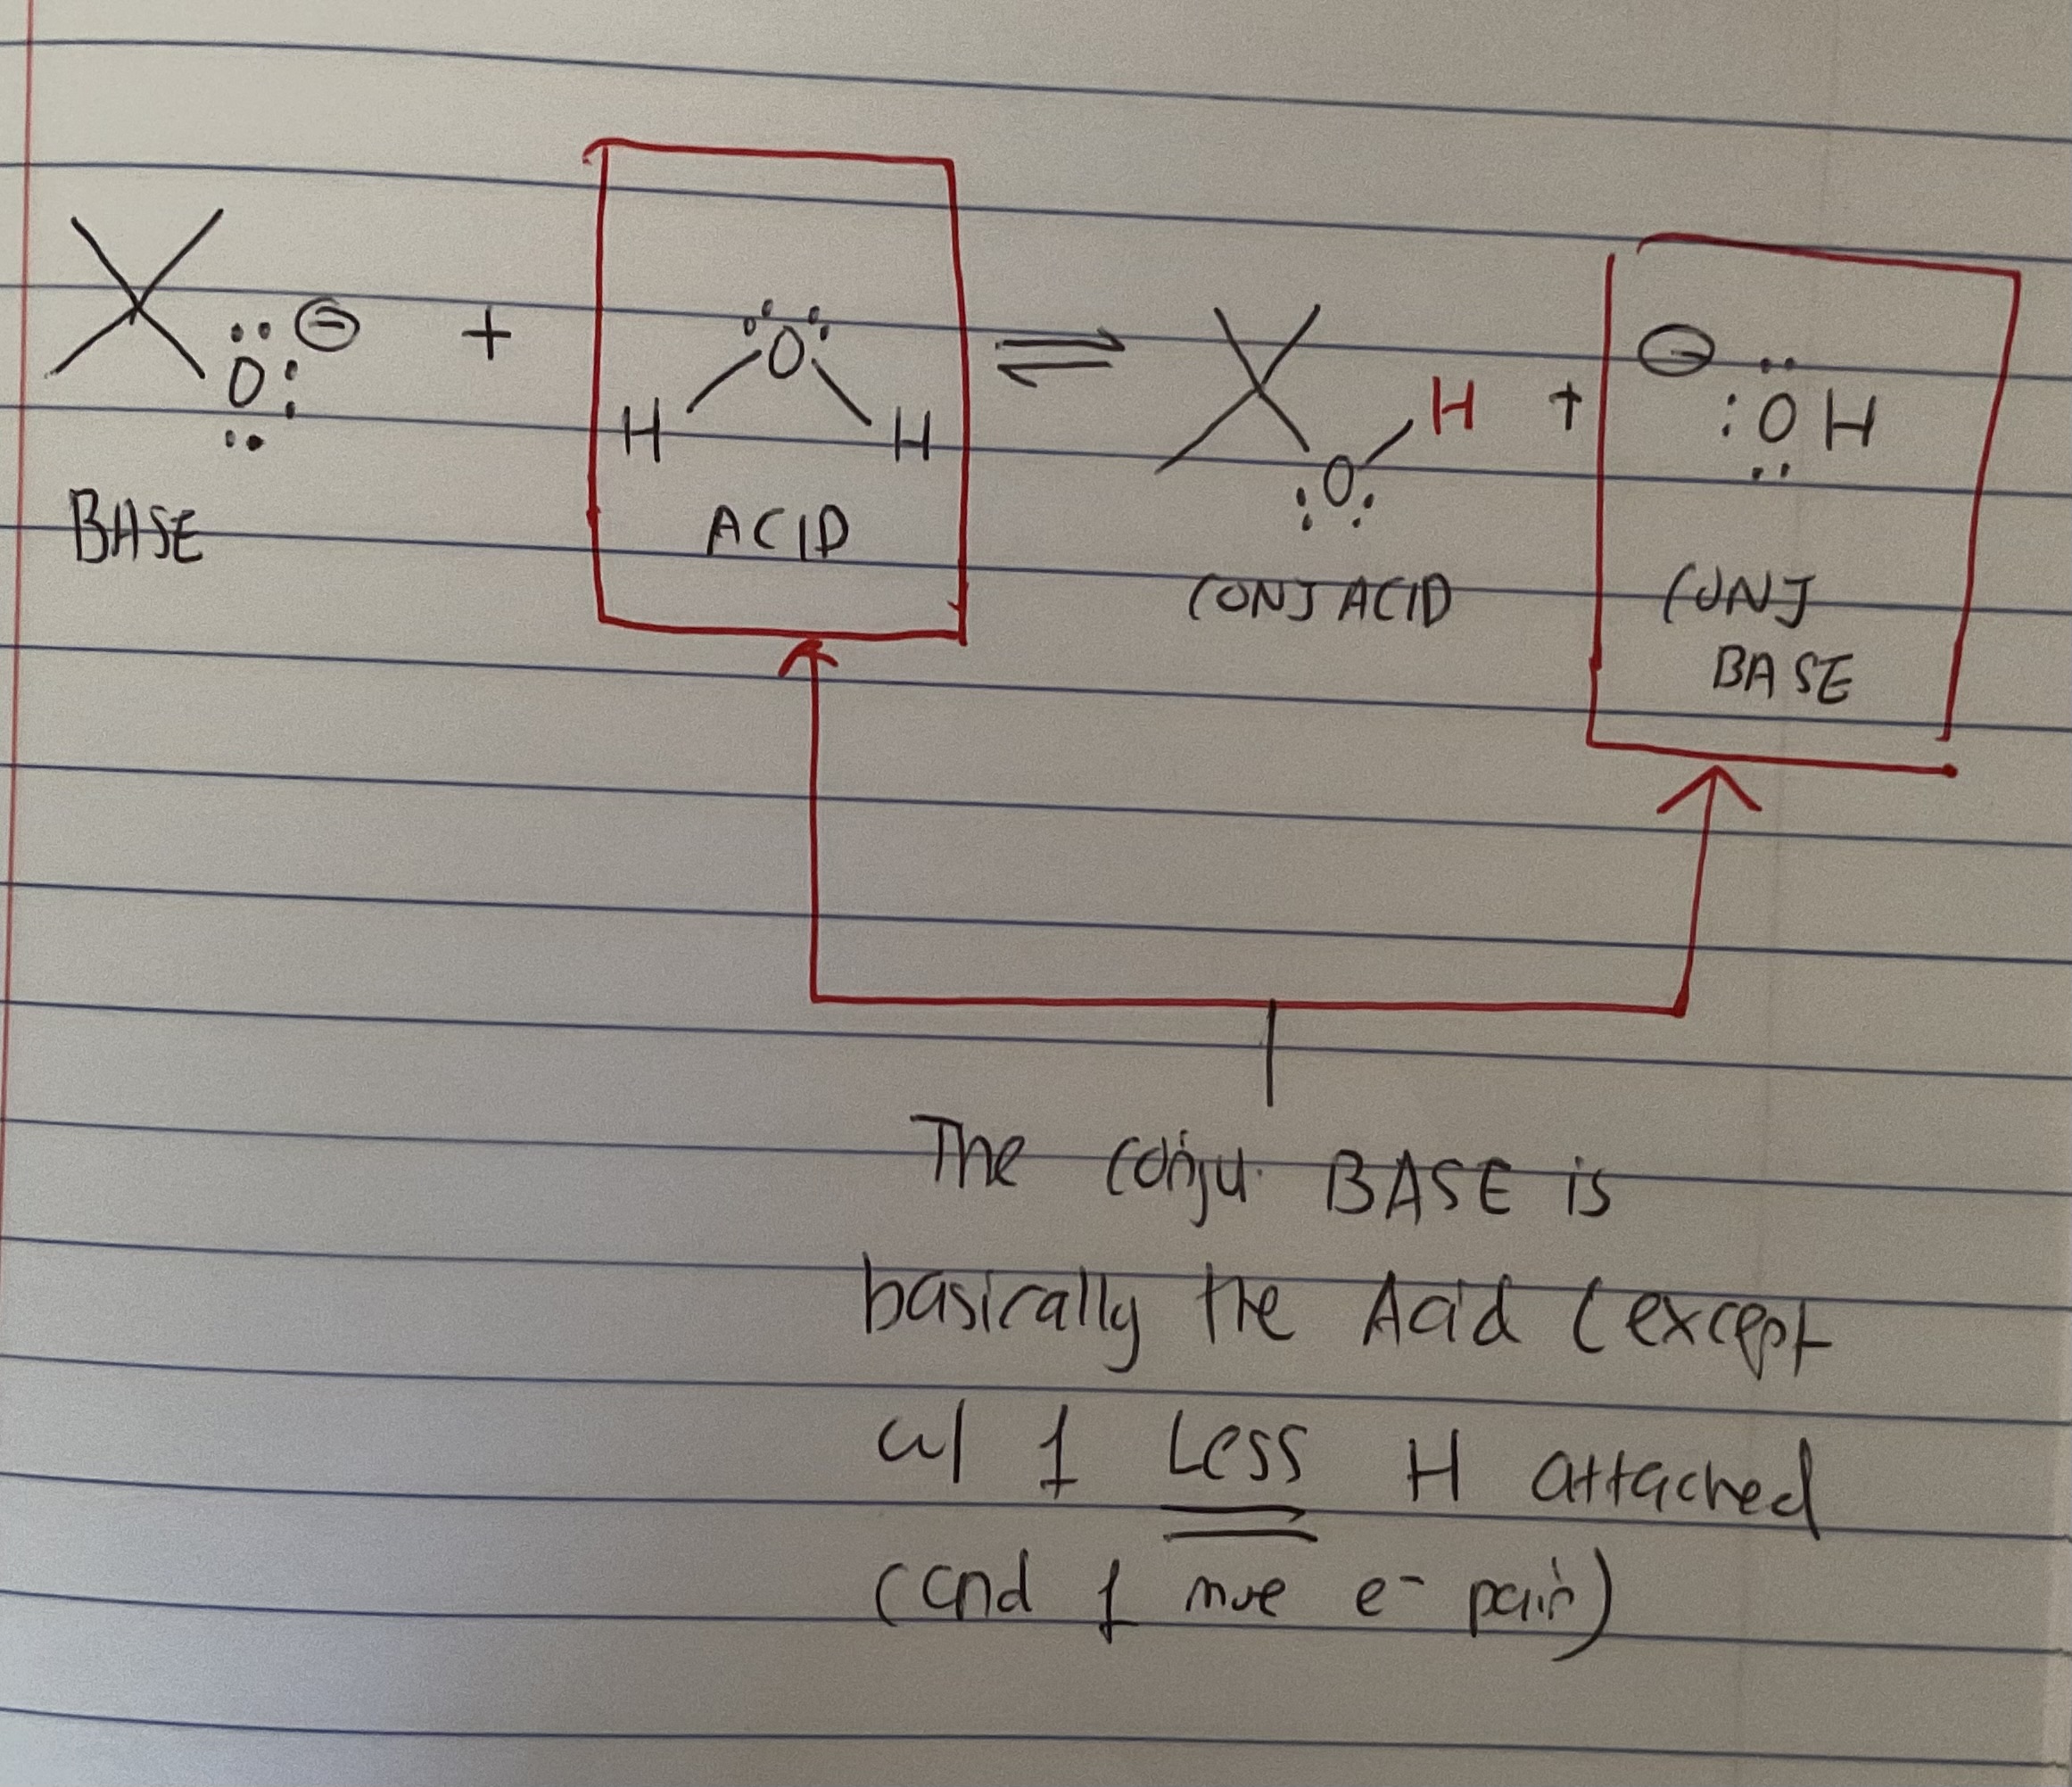 O: ⊖ + H O H ⇌ O H + ⊖ :OH
BASE
ACID
CONJ ACID
CONJ
BASE
The conju. BASE is
basically the Acid (except
w/ 1 Less H attached
(and 1 more e- pair)